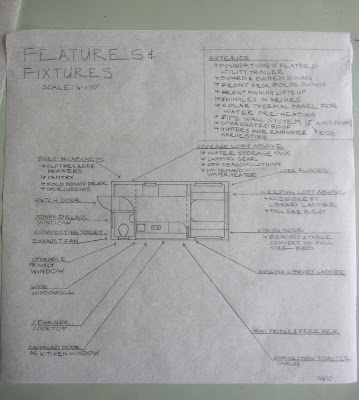 FEATURES &
FIXTURES
SCALE: 1/4"=1'0"
EXTERIOR
FOUNDATION: FLATBED
UTILITY TRAILER
BOARD & BATTEN SIDING
FRONT DECK FOLDS DOWN
FRONT AWNING LIFTS UP
SHINGLES IN ARCHES
SOLAR THERMAL PANEL FOR
WATER PRE-HEATING
SIPS WALL SYSTEM
CORRUGATED ROOF
GUTTERS FOR RAINWATER
HARVESTING
STORAGE LOFT ABOVE
WATER STORAGE TANK
CAMPING GEAR
OFF SEASON CLOTHING
ON-DEMAND
WATER HEATER
FLOORS
BUILT-IN CABINETS
CLOTHES ROD &
DRAWERS
PANTRY
FOLD DOWN DESK
SHOE CUBBIES
DUTCH DOOR
STAINED GLASS
WINDOW
COMPOSTING TOILET
EXHAUST FAN
OPERABLE
PRIVACY
WINDOW
WIDE
WINDOWSILL
2 BURNER
COOKTOP
SALVAGED DOOR
AS KITCHEN WINDOW
SLEEPING LOFT ABOVE
ACCESSIBLE BY
LIBRARY LADDER
FULL SIZE BED
DINING NOOK
BENCHES & TABLE
CONVERT TO FULL
SIZE BED
ROLLING LIBRARY LADDER
MINI FRIDGE & FREEZER
CONVECTION TOASTER
OVEN